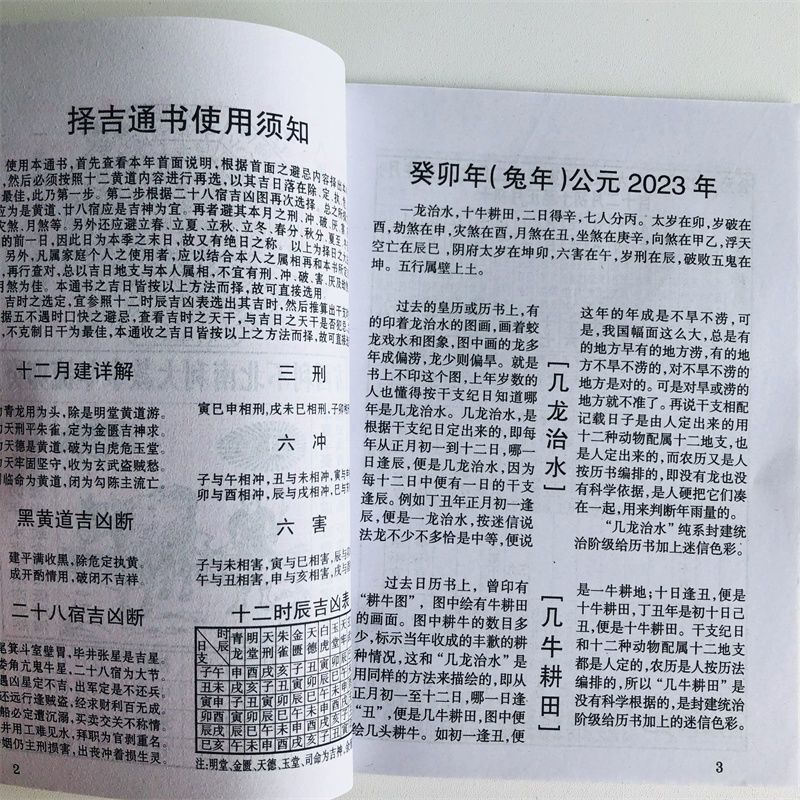 择吉通书使用须知
使用本通书,首先查看本年首面说明,根据首面之避忌内容择出本
,然后必须按照十二黄道内容进行再选,以其吉日落在除、定、执、
最佳,此乃第一步。第二步根据二十八宿吉凶图再次选择,总之所
应为是黄道、廿八宿应是吉神为宜。再者避其本月之刑、冲、破、厌、
灾、月煞等。另外还应避立春、立夏、立秋、立冬、春分、秋分、夏至
的前一日,因此日为本季之末日,故又有绝日之称。以上为择日之
另外,凡属家庭个人之使用者,应以结合本人之属相再和本书所
,再行查对,总以吉日地支与本人属相,不宜有刑、冲、破、害、厌及
月煞为佳。本通书之吉日皆按以上方法而择,故可直接选用。
吉时之选定,宜参照十二时辰吉凶表选出其吉时,然后推算出干支
据五不遇时口快之避忌,查看吉时之天干,与吉日之天干是否犯忌
,不克制日干为最佳,本通收之吉日皆按以上之方法而择,故可直接
十二月建详解
为青龙用为头,除是明堂黄道游。
为天刑平朱雀,定为金匮吉神求。
为天德是黄道,破为白虎危玉堂。
为天牢固坚守,收为玄武盗贼愁。
司临命为黄道,闭为勾陈主流亡。
黑黄道吉凶断
建平满收黑,除危定执黄。
成开酌情用,破闭不吉祥。
二十八宿吉凶断
尾箕斗室壁胃,毕井张星是吉星。
娄角亢鬼牛星,二十八宿为大节。
遇凶星定不吉,出军定是不还兵。
还远行逢贼盗,经求财利百无成。
船必定遭沉溺,买卖交关不称情。
井用工难见水,拜职为官剥重名。
婚姻仍主刑损害,出丧冲着损生灵。
三刑
寅巳申相刑,戌未巳相刑,子卯相
六冲
子与午相冲,丑与未相冲,寅与申
卯与酉相冲,辰与戌相冲,巳与
六害
子与未相害,寅与巳相害,辰与
午与丑相害,申与亥相害,戌与
十二时辰吉凶表
时辰 日支 青龙 明堂 天刑 朱雀 金匮 天德 白虎 玉堂
子午 申 酉 戌 亥 子 丑 寅 卯
丑未 戌 亥 子 丑 寅 卯 辰 巳
寅申 子 丑 寅 卯 辰 巳 午 未
卯酉 寅 卯 辰 巳 午 未 申 酉
辰戌 辰 巳 午 未 申 酉 戌 亥
巳亥 午 未 申 酉 戌 亥 子 丑
注:明堂、金匮、天德、玉堂、司命为吉神,
2
癸卯年(兔年)公元 2023 年
一龙治水,十牛耕田,二日得辛,七人分丙。太岁在卯,岁破在
酉,劫煞在申,灾煞在酉,月煞在丑,坐煞在庚辛,向煞在甲乙,浮天
空亡在辰巳,阴府太岁在坤卯,六害在午,岁刑在辰,破败五鬼在
坤。五行属壁上土。
[几龙治水]
过去的皇历或历书上,有
的印着龙治水的图画,画着蛟
龙戏水和图象,图中画的龙多
年成偏涝,龙少则偏旱。就是
书上不印这个图,上年岁数的
人也懂得按干支纪日知道哪
年是几龙治水。几龙治水,是
根据干支纪日定出来的,即每
年从正月初一到十二日,哪一
日逢辰,便是几龙治水,因为
每十二日中便有一日的干支
逢辰。例如丁丑年正月初一逢
辰,便是一龙治水,按迷信说
法龙不少不多恰是中等,便说
这年的年成是不旱不涝,可
是,我国幅面这么大,总是有
的地方旱有的地方涝,有的地
方不旱不涝的,对不旱不涝的
地方是对的。可是对旱或涝的
地方就不准了。再说干支相配
记载日子是由人定出来的用
十二种动物配属十二地支,也
是人定出来的,而农历又是人
按历书编排的,即没有龙也没
有科学依据,是人硬把它们凑
在一起,用来判断年雨量的。
“几龙治水”纯系封建统
治阶级给历书加上迷信色彩。
[几牛耕田]
过去日历书上,曾印有
“耕牛图”,图中绘有牛耕田
的画面。图中耕牛的数目多
少,标示当年收成的丰歉的耕
种情况,这和“几龙治水”是
用同样的方法来描绘的,即从
正月初一至十二日,哪一日逢
“丑”,便是几牛耕田,图中便
绘几头耕牛。如初一逢丑,便
是一牛耕地;十日逢丑,便是
十牛耕田,丁丑年是初十日己
丑,便是十牛耕田。干支纪日
和十二种动物配属十二地支
都是人定的,农历是人按历法
编排的,所以“几牛耕田”是
没有科学根据的,是封建统治
阶级给历书加上的迷信色彩。
3